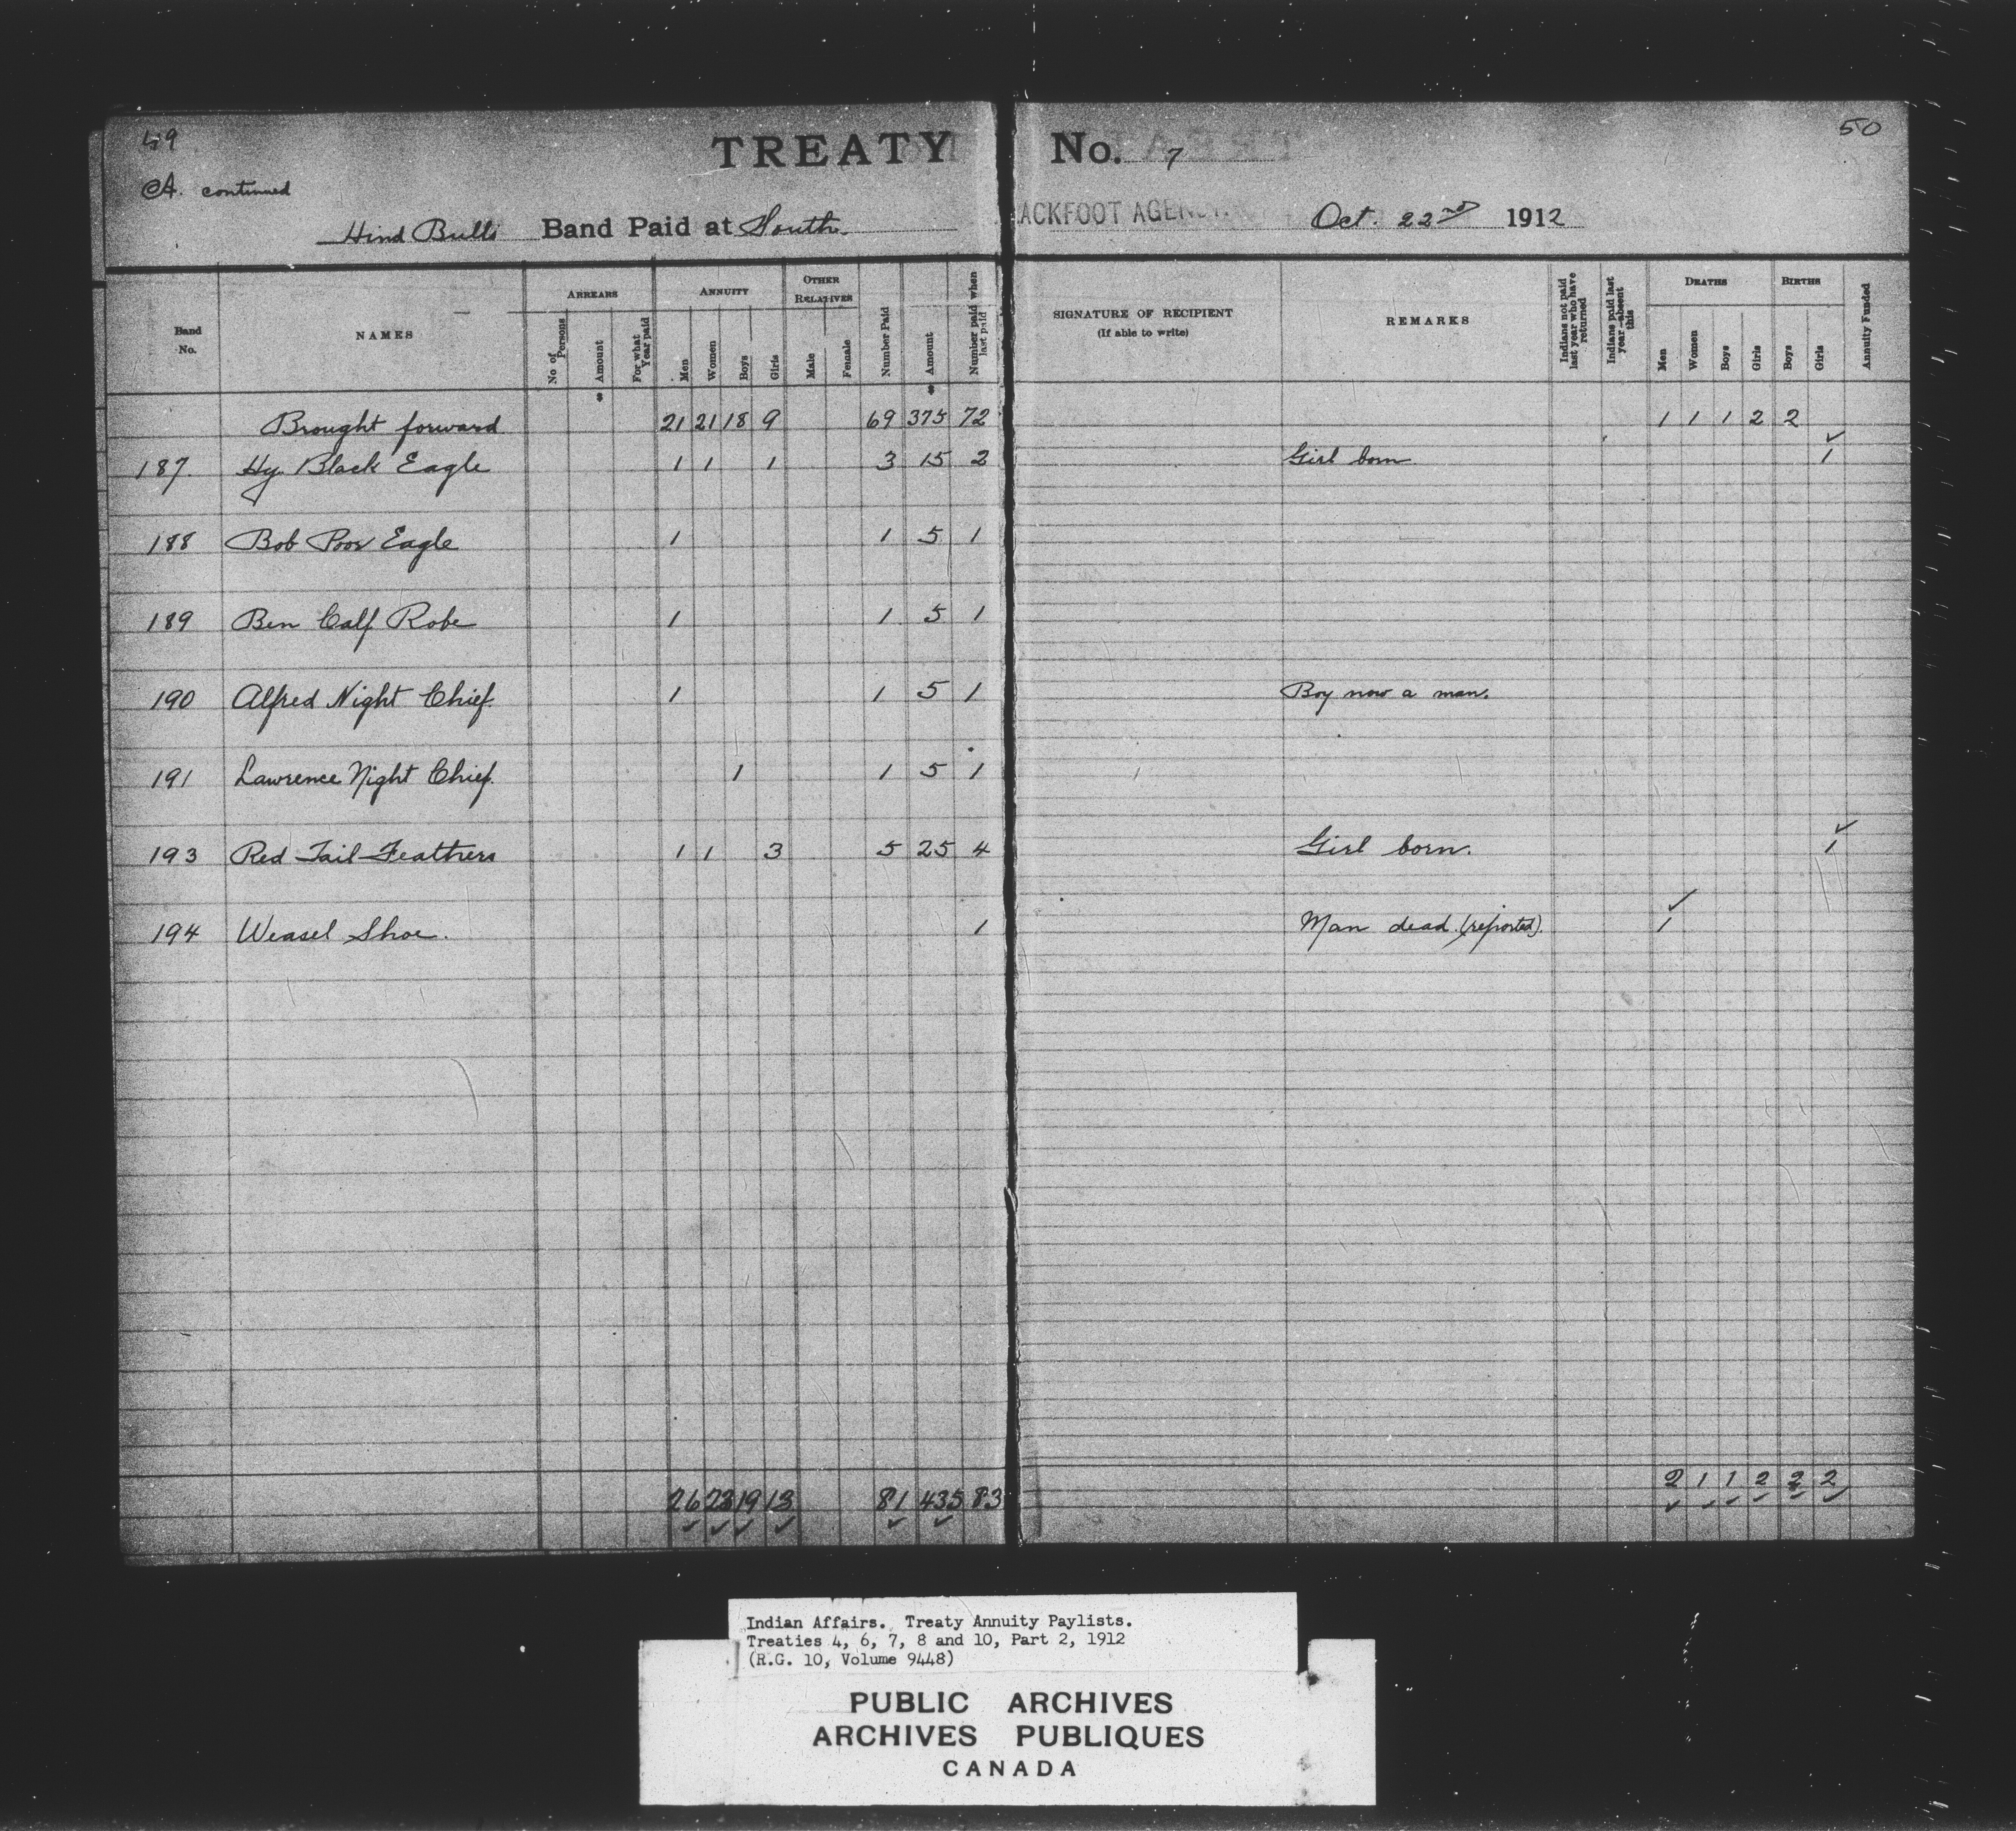 49
TREATY No. 7
50
A. continued
Hind Bull's Band Paid at South
ACKFOOT AGENCY. Oct. 22nd 1912
Band No.
NAMES
ARREARS
No of Persons
Amount $
For what Year paid
ANNUITY
Men
Women
Boys
Girls
OTHER RELATIVES
Male
Female
Number Paid
Amount $
Number paid when last paid
SIGNATURE OF RECIPIENT
(If able to write)
REMARKS
Indians not paid last year who have returned
Indians paid last year—absent this
DEATHS
Men
Women
Boys
Girls
BIRTHS
Boys
Girls
Annuity Funded
Brought forward 21 21 18 9 69 375 72 1 1 1 2 2
187. Hy. Black Eagle 1 1 1 3 15 2 Girl born 1
188 Bob Poor Eagle 1 1 5 1
189 Ben Calf Robe 1 1 5 1
190 Alfred Night Chief. 1 1 5 1 Boy now a man.
191 Lawrence Night Chief. 1 1 5 1
193 Red Tail Feathers 1 1 3 5 25 4 Girl born. 1
194 Weasel Shoe. 1 Man dead. (reported). 1
26 23 19 13 81 435 83 2 1 1 2 2 2
Indian Affairs. Treaty Annuity Paylists.
Treaties 4, 6, 7, 8 and 10, Part 2, 1912
(R.G. 10, Volume 9448)
PUBLIC ARCHIVES
ARCHIVES PUBLIQUES
CANADA